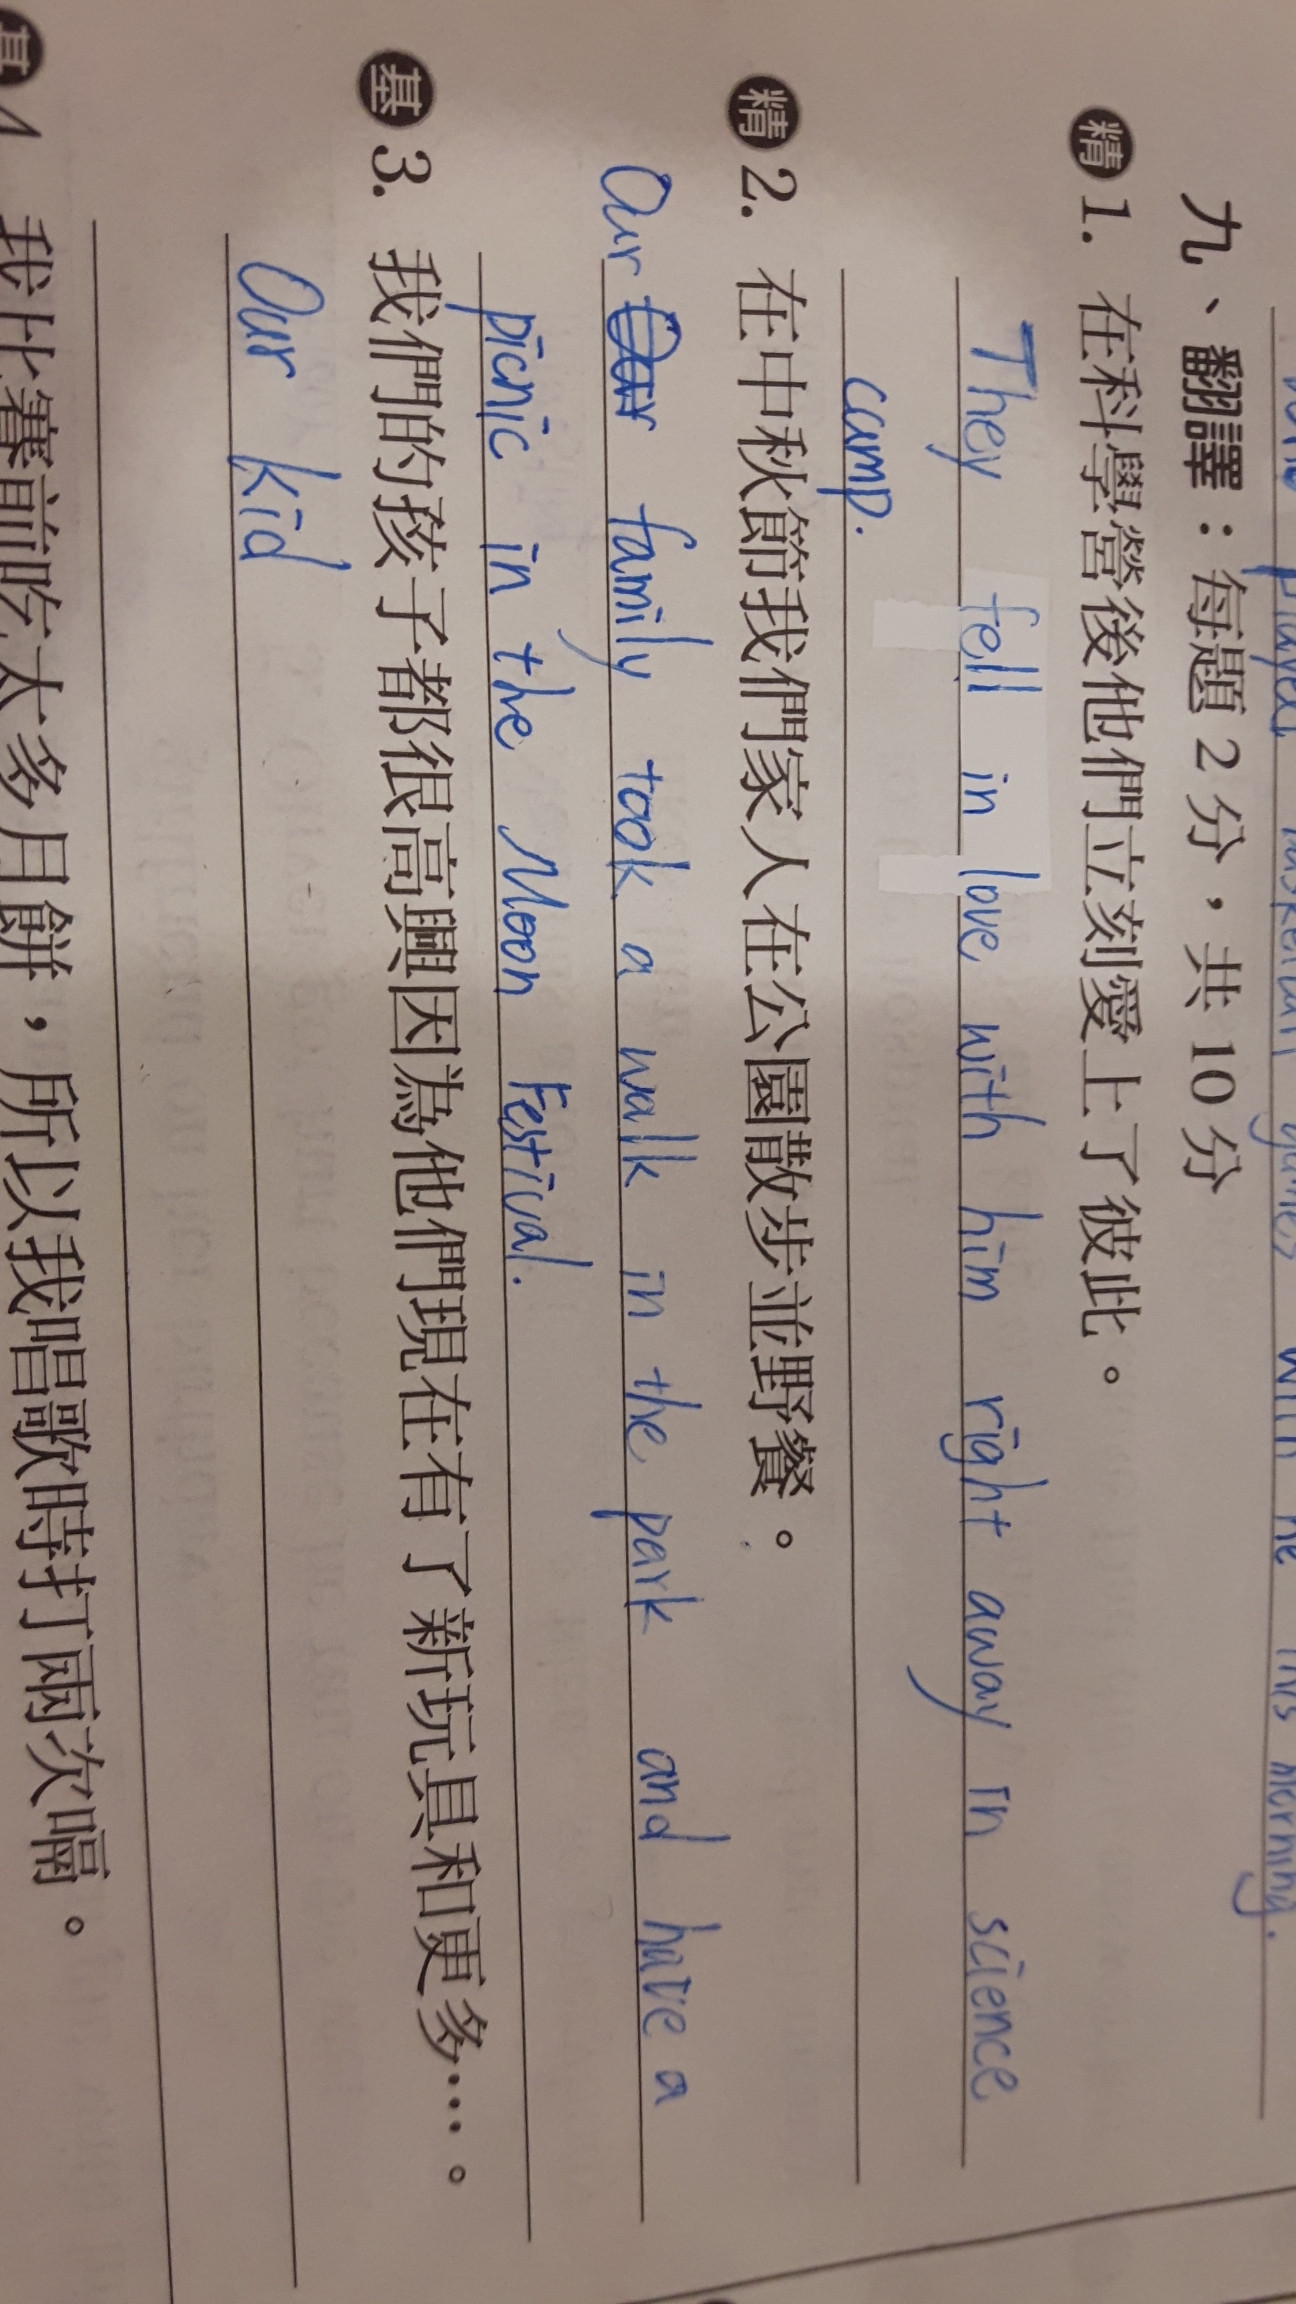 played basketball games with me this morning.
九、翻譯：每題2分，共10分
精 1. 在科學營後他們立刻愛上了彼此。
They fell in love with him right away in science
camp.
精 2. 在中秋節我們家人在公園散步並野餐。
Our family took a walk in the park and have a
picnic in the Moon Festival.
基 3. 我們的孩子都很高興因為他們現在有了新玩具和更多…。
Our kid
基 4 我比賽前吃太多月餅，所以我唱歌時打兩次嗝。